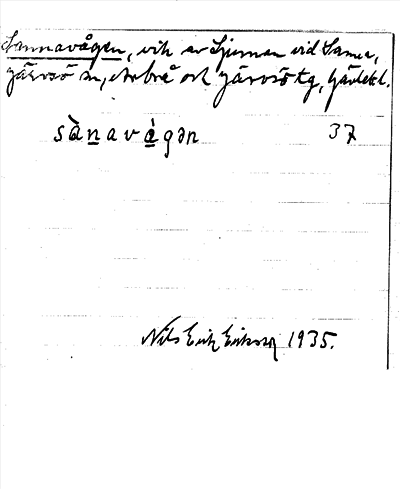 Sannavågen, vik av Ljusnan vid Sanna,
Järvsö sn, Arbrå och Järvsö tg, Gävlebl.
sànavågən 37
Nils Erik Eriksson 1935.